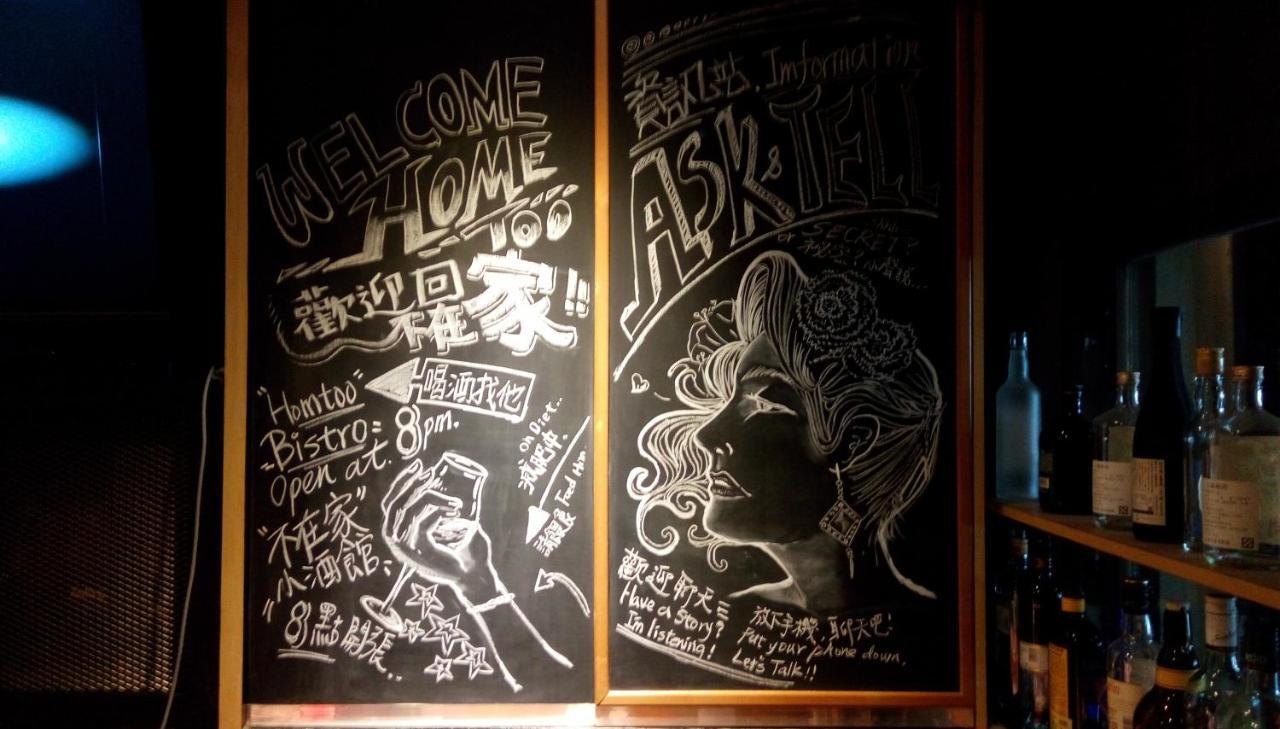 WELCOME
HOME
TOO
歡迎回家!!
不在
喝酒找他
"Homtoo"
Bistro
Open at 8pm.
"不在家"
小酒館
8點開張..
on Diet..
減肥中
Feed Him
請餵食
資訊站.Imformation
ASK & TELL
or SECRET?
秘密?
歡迎聊天
Have a Story?
I'm listening!
放下手機,聊天吧!
Put your phone down,
Let's Talk!!